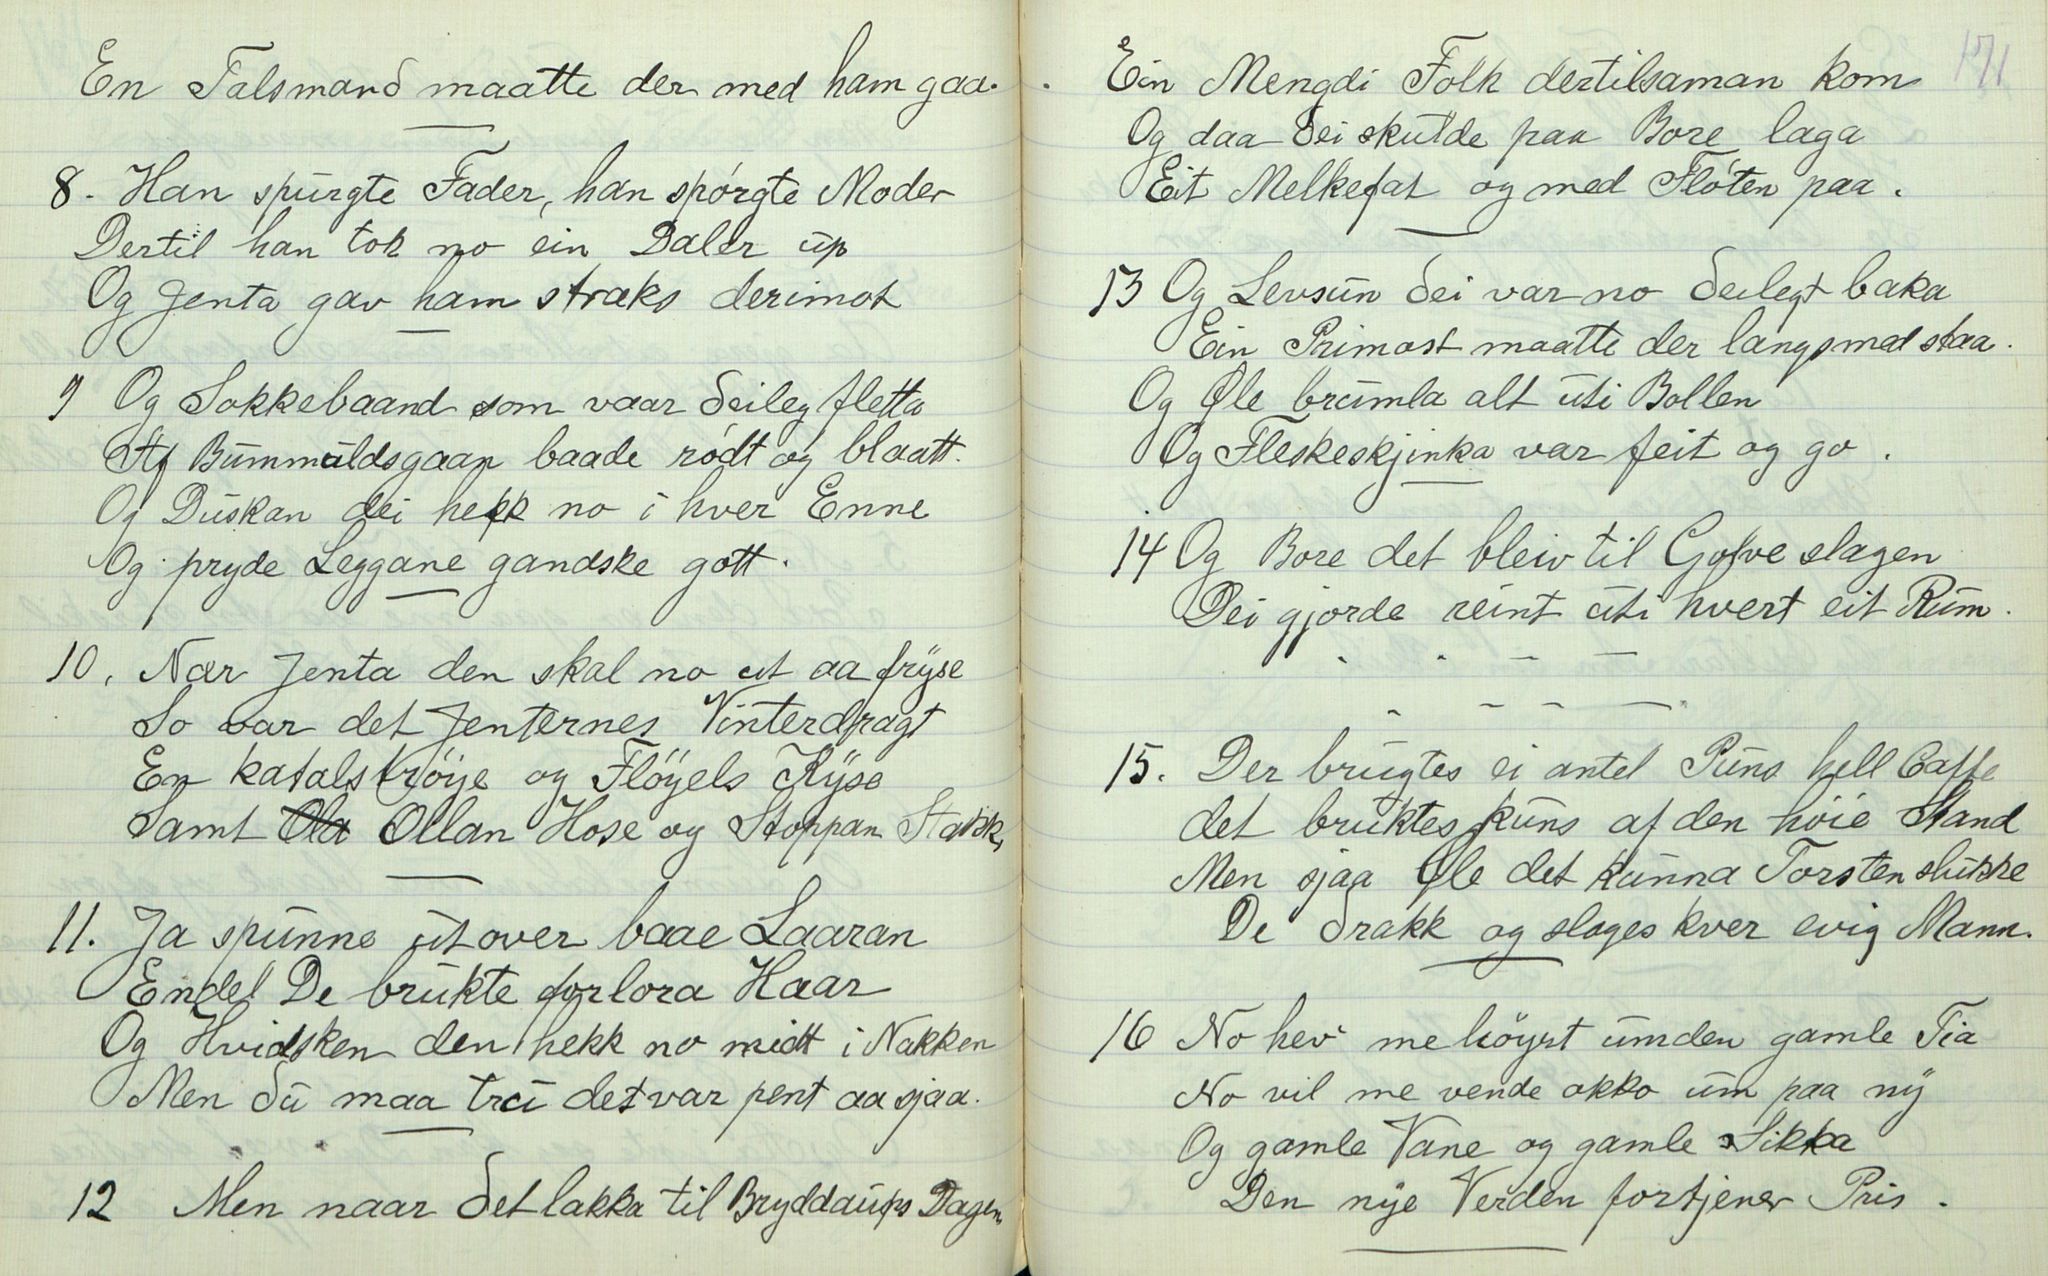 En Talsmand maatte der med ham gaa.
8. Han spurgte Fader, han spórgte Moder
Dertil han tok no ein Daler up
Og Jenta gav ham straks derimot
9 Og Sokkebaand som vaar deileg fletta
Af Bummuldsgaan baaderódt og blaatt.
Og Duskan dei hekk no i hver Enne
Og pryde Leggane gandske gott.
10. Nær Jenta den skal no ut aa fryse
So var det Jenternes Vinterdragt
En katalstrøije og Flóyels Kyse
Samt Ollan Hose og Stoppan Stakk
11. Ja spunne ut over baae Laaran
Endel De brukte forlora Haar
Og Hvidsken den hekk no midt i Nakken
Men du maa tru det var pent aa sjaa.
12 Men naar det lakka til Bryddaups Dagen
171
Ein Mengdi Folk dertilsaman kom
Og daa dei skulde paa Bore laga
Eit Melkefat og med Flóten paa.
13 Og Levsun dei var no deilegt baka
Ein Primost maatte der langsmed staa.
Og Øle brumla alt uti Bollen
Og Fleskeskjinka var feit og go.
14 Og Bore det bleiv til Golve slagen
Dei gjorde reint uti hvert eit Rum.
15. Der brugtes ei antel Puns hell Caffe
det bruktes kuns af den høie Stand
Men sjaa Øle det kunna Torsten slukke
De drakk og sloges kver evig Mann.
16 No hev me höyrt um den gamle Tia
No vil me vende okko um paa ny
Og gamle Vane og gamle Sikka
Den nye Verden fortjener Pris.